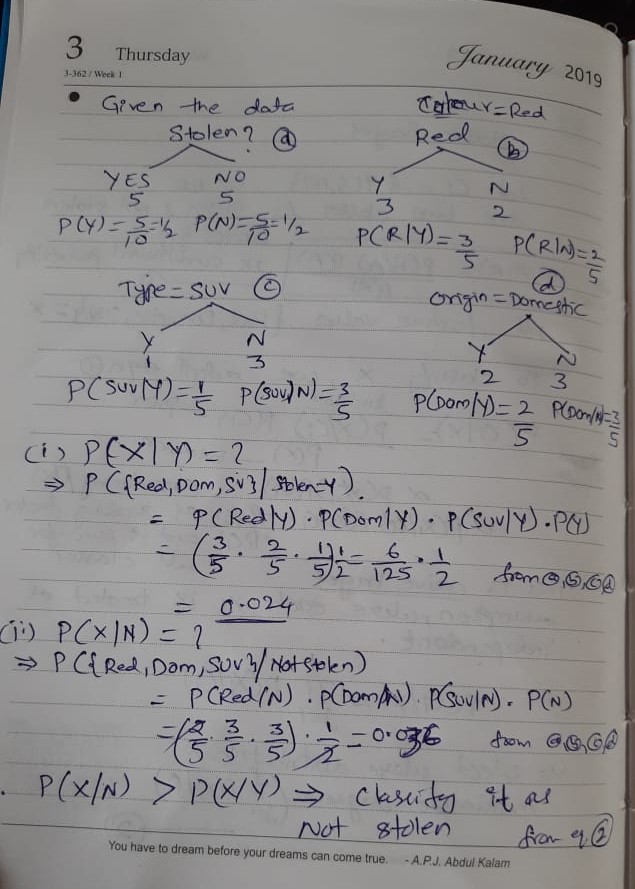 3 Thursday
January 2019
3-362 / Week 1
• Given the data
Stolen? ⓐ
YES NO
5 5
P(Y) = 5/10 = 1/2 P(N) = 5/10 = 1/2
Colour = Red
Red ⓑ
Y N
3 2
P(R|Y) = 3/5 P(R|N) = 2/5
Type = SUV ⓒ
Y N
1 3
P(SUV|Y) = 1/5 P(SUV|N) = 3/5
ⓓ
Origin = Domestic
Y N
2 3
P(Dom|Y) = 2/5 P(Dom/N) = 3/5
(i) P(X|Y) = ?
⇒ P({Red, Dom, SUV} / Stolen=Y).
= P(Red|Y) . P(Dom|Y) . P(SUV|Y) . P(Y)
= (3/5 . 2/5 . 1/5) 1/2 = 6/125 . 1/2 from ⓐ,ⓑ,ⓒ,ⓓ
= 0.024
(ii) P(X|N) = ?
⇒ P({Red, Dom, SUV} / Not stolen)
= P(Red/N) . P(Dom/N) . P(SUV|N) . P(N)
= (2/5 . 3/5 . 3/5) . 1/2 = 0.036 from ⓐ,ⓑ,ⓒ,ⓓ
. P(X/N) > P(X/Y) ⇒ Classify it as
Not stolen from eq. ②
You have to dream before your dreams can come true. - A.P.J. Abdul Kalam